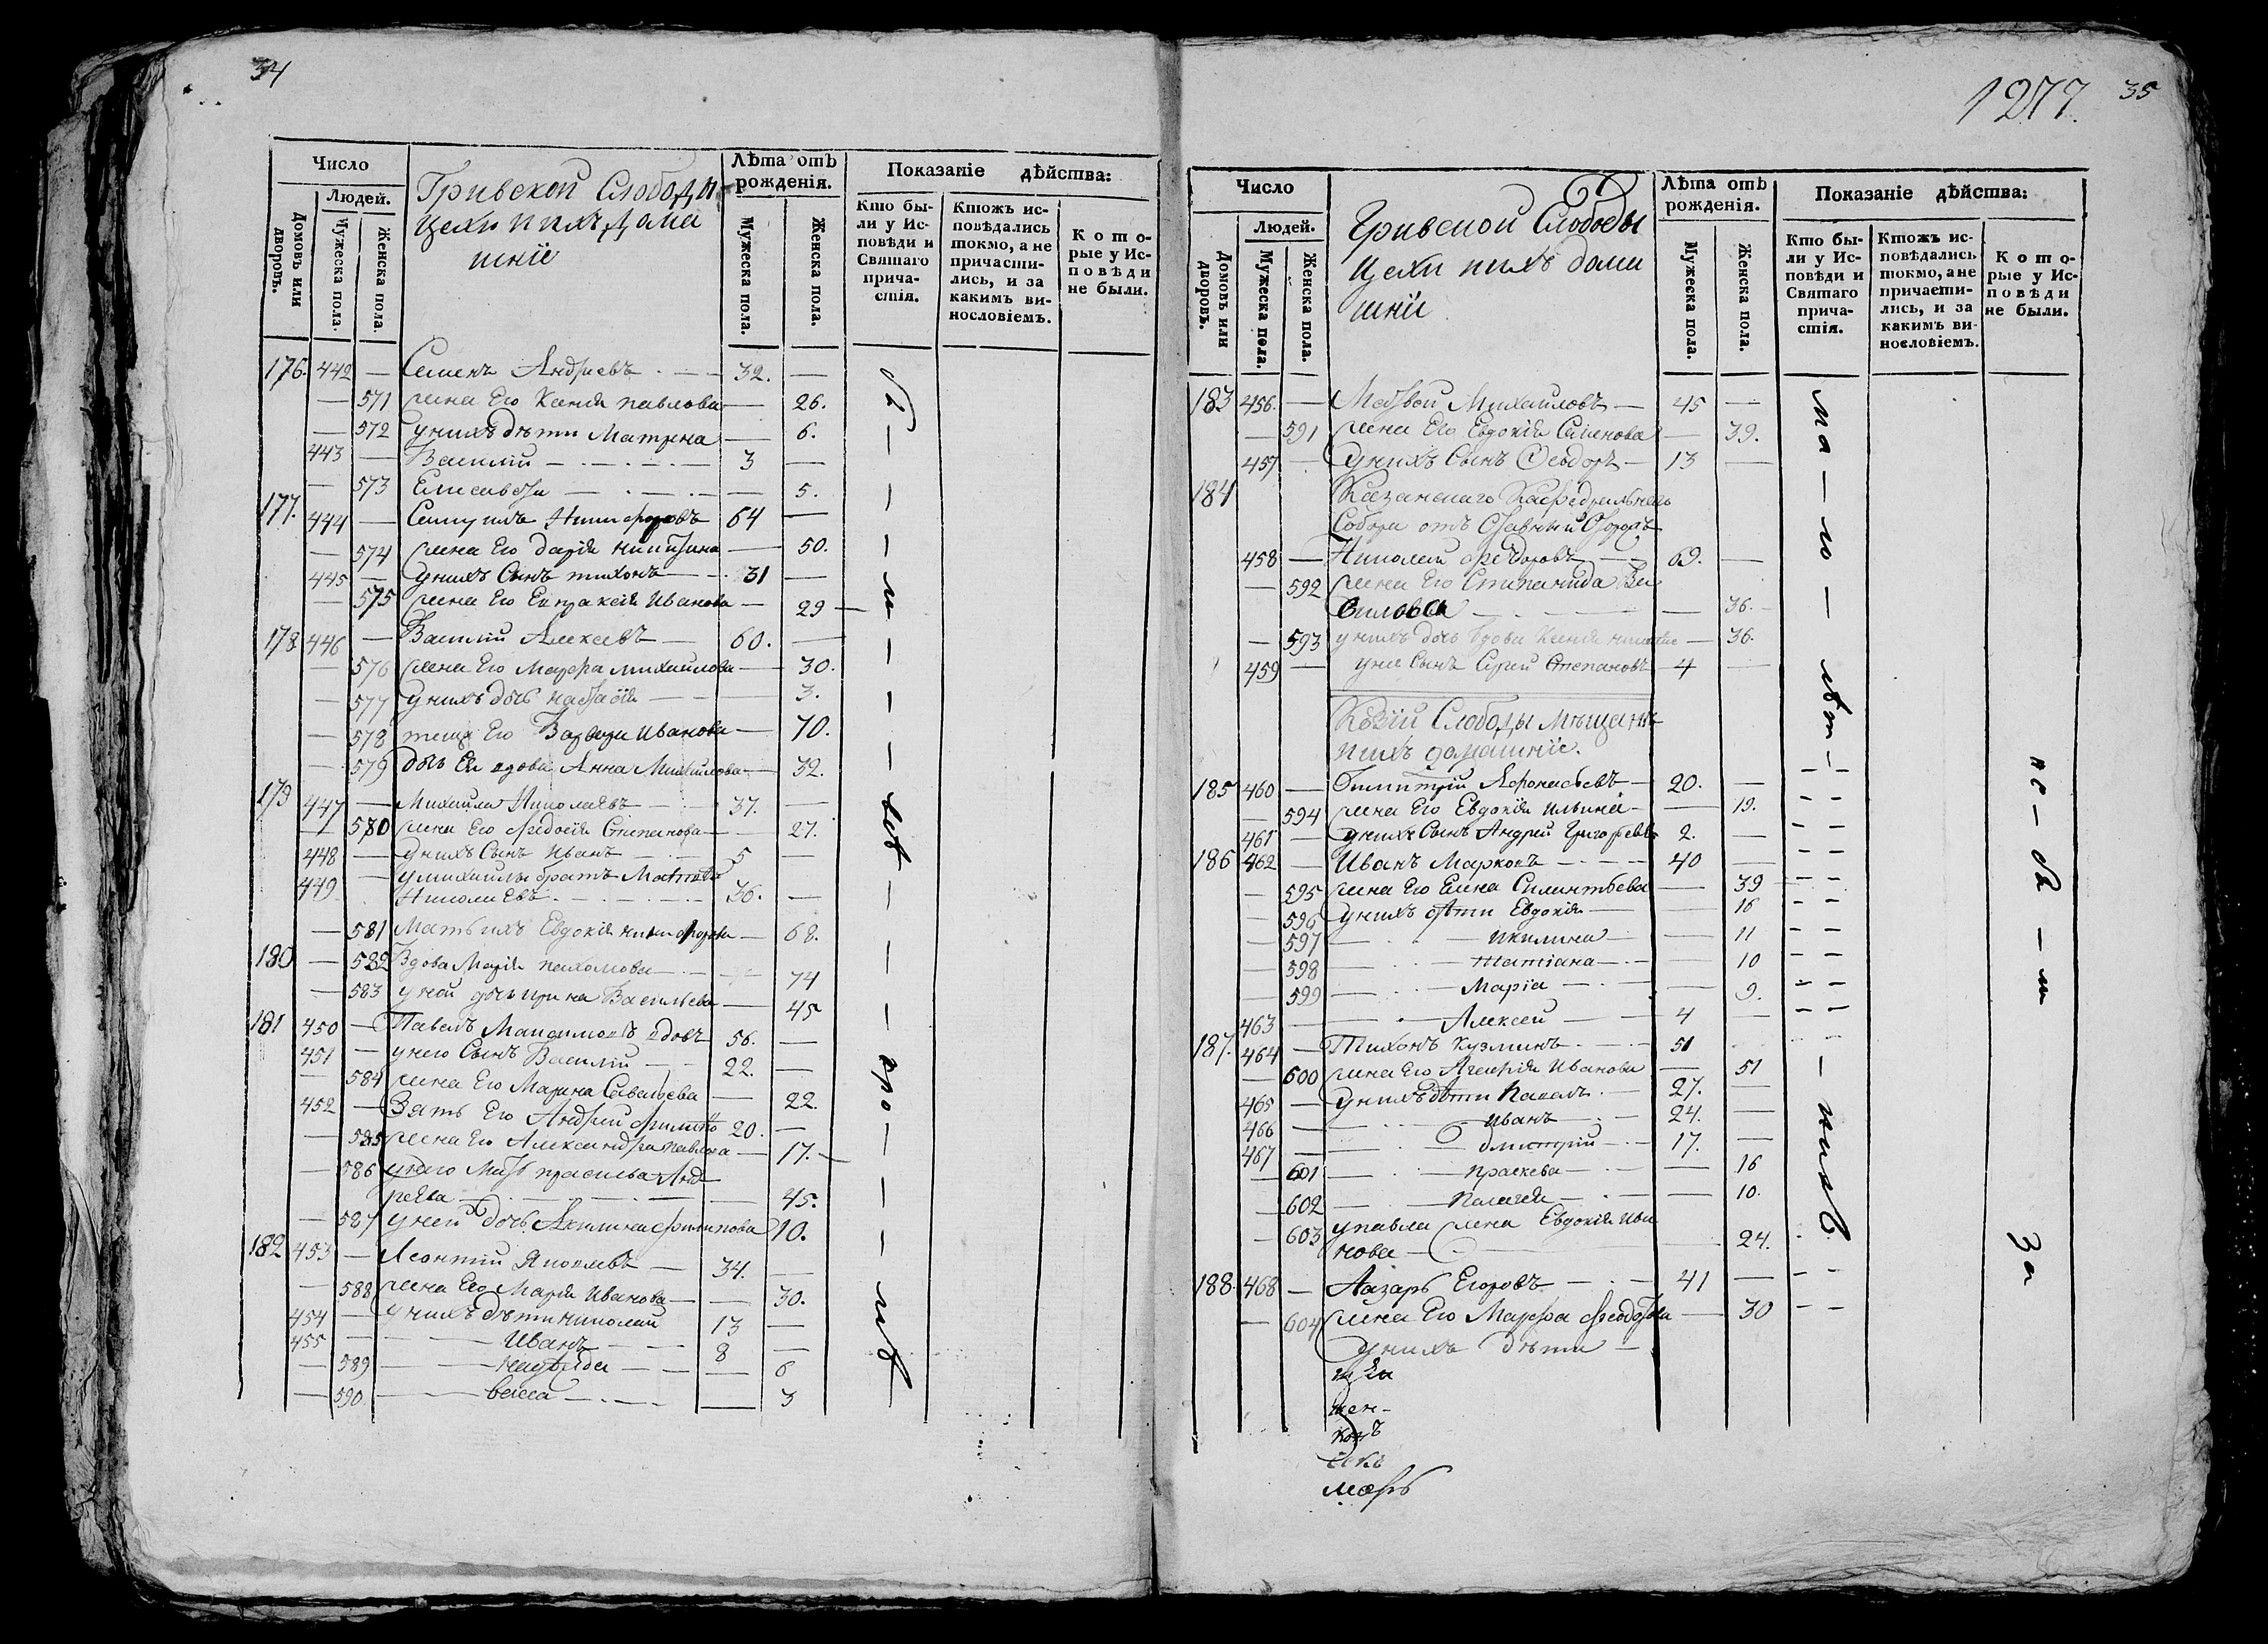 34
Число
Людей.
Домовъ или дворовъ.
Мужеска пола.
Женска пола.
Гривской Слободы
цехи и ихъ дома
шніе
Лѣта отъ рожденія.
Мужеска пола.
Женска пола.
Показаніе дѣйства:
Кто бы-
ли у Ис-
повѣди и
Святаго
прича-
стія.
Ктожъ ис-
повѣдались
токмо, а не
причасти-
лись, и за
какимъ ви-
нословіемъ.
Кото-
рые у Ис-
повѣди
не были.
176. 442 — Семенъ Андреевъ 32. —
— 571 жена Его Ксенія павлова — 26.
— 572 у нихъ дѣти Матрена — 6.
443 — Василій 3 —
— 573 Елисавета — 5.
177. 444 — Никифоровъ 64 —
— 574 жена Его дарія никитина — 50.
445 — у нихъ Сынъ тихонъ 31 —
— 575 жена Его Евпраксія Иванова — 29
178 446 — Василій Алексеевъ 60. —
— 576 жена Его Марфа михайлова — 30.
— 577 у нихъ дочь настасія — 3.
— 578 теща Его Варвара Иванова — 70.
— 579 дочь Ея вдова Анна Михайлова — 32.
179 447 — Михайла Николаевъ 37. —
— 580 жена Его федосія Степанова — 27.
448 — у нихъ Сынъ Иванъ 5 —
449 — у михайлы братъ
Николаевъ 36. —
— 581 Мать ихъ Евдокія никифорова — 68.
180 — 582 Вдова Марія пахомова — 74
— 583 у ней дочь ирина Васильева — 45
181 450 — Павелъ Максимовъ вдовъ 56. —
451 — у него Сынъ Василій 22. —
— 584 жена Его Марина Савельева — 22.
452 — Зять Его Андрей 20. —
— 585 жена Его Александра павлова — 17.
— 586 у него Мать Анд
реева — 45.
— 587 у ней дочь Акилина филипова 10.
182 453 — Леонтій Яковлевъ 34. —
— 588 жена Его Марія Иванова — 30.
454 — у нихъ дѣти николай 13 —
455 — Иванъ 8 —
— 589 надежда — 6
— 590 васса — 3
1277. 35
Число
Людей.
Домовъ или дворовъ.
Мужеска пола.
Женска пола.
Гривской Слободы
Цехи и ихъ дома
шніе
Лѣта отъ рожденія.
Мужеска пола.
Женска пола.
Показаніе дѣйства:
Кто бы-
ли у Ис-
повѣди и
Святаго
прича-
стія.
Ктожъ ис-
повѣдались
токмо, а не
причасти-
лись, и за
какимъ ви-
нословіемъ.
Кото-
рые у Ис-
повѣди
не были.
183 456. — Матвей Михайловъ 45 —
— 591 жена Его Евдокія Семенова — 39.
457 — у нихъ Сынъ Ѳеодоръ 13 —
184 Казанскаго Кафедральнаго
Собора отъ
458 — Николай феодоровъ 69. —
— 592 жена Его Степанида Ва
силова — 36.
— 593 у нихъ дочь вдова Ксенія — 36.
459 — у нея Сынъ Сергей Степановъ 4 —
Слободы Мѣщане
и ихъ домашніе.
185 460 — Димитрій Афонасьевъ 20. —
— 594 жена Его Евдокія ильина — 19.
461 — у нихъ Сынъ Андрей Григорьевъ 2. —
186 462 — Иванъ Марковъ 40 —
— 595 жена Его Елена Силантьева — 39
— 596 у нихъ дѣти Евдокія — 16
— 597 Акилина — 11
— 598 татіана — 10
— 599 Маріа — 9.
463 — Алексей 4 —
187. 464 — Тихонъ Кузминъ 51
— 600 жена Его Иванова — 51
465 — у нихъ дѣти Павелъ 27. —
466 — Иванъ 24. —
467 — дмитрій 17. —
— 601 праскева — 16
— 602 Палагея — 10.
— 603 у павла жена Евдокія Ива
нова — 24.
188. 468 — Лазарь Егоровъ 41 —
— 604 жена Его Марфа — 30
у нихъ дѣти